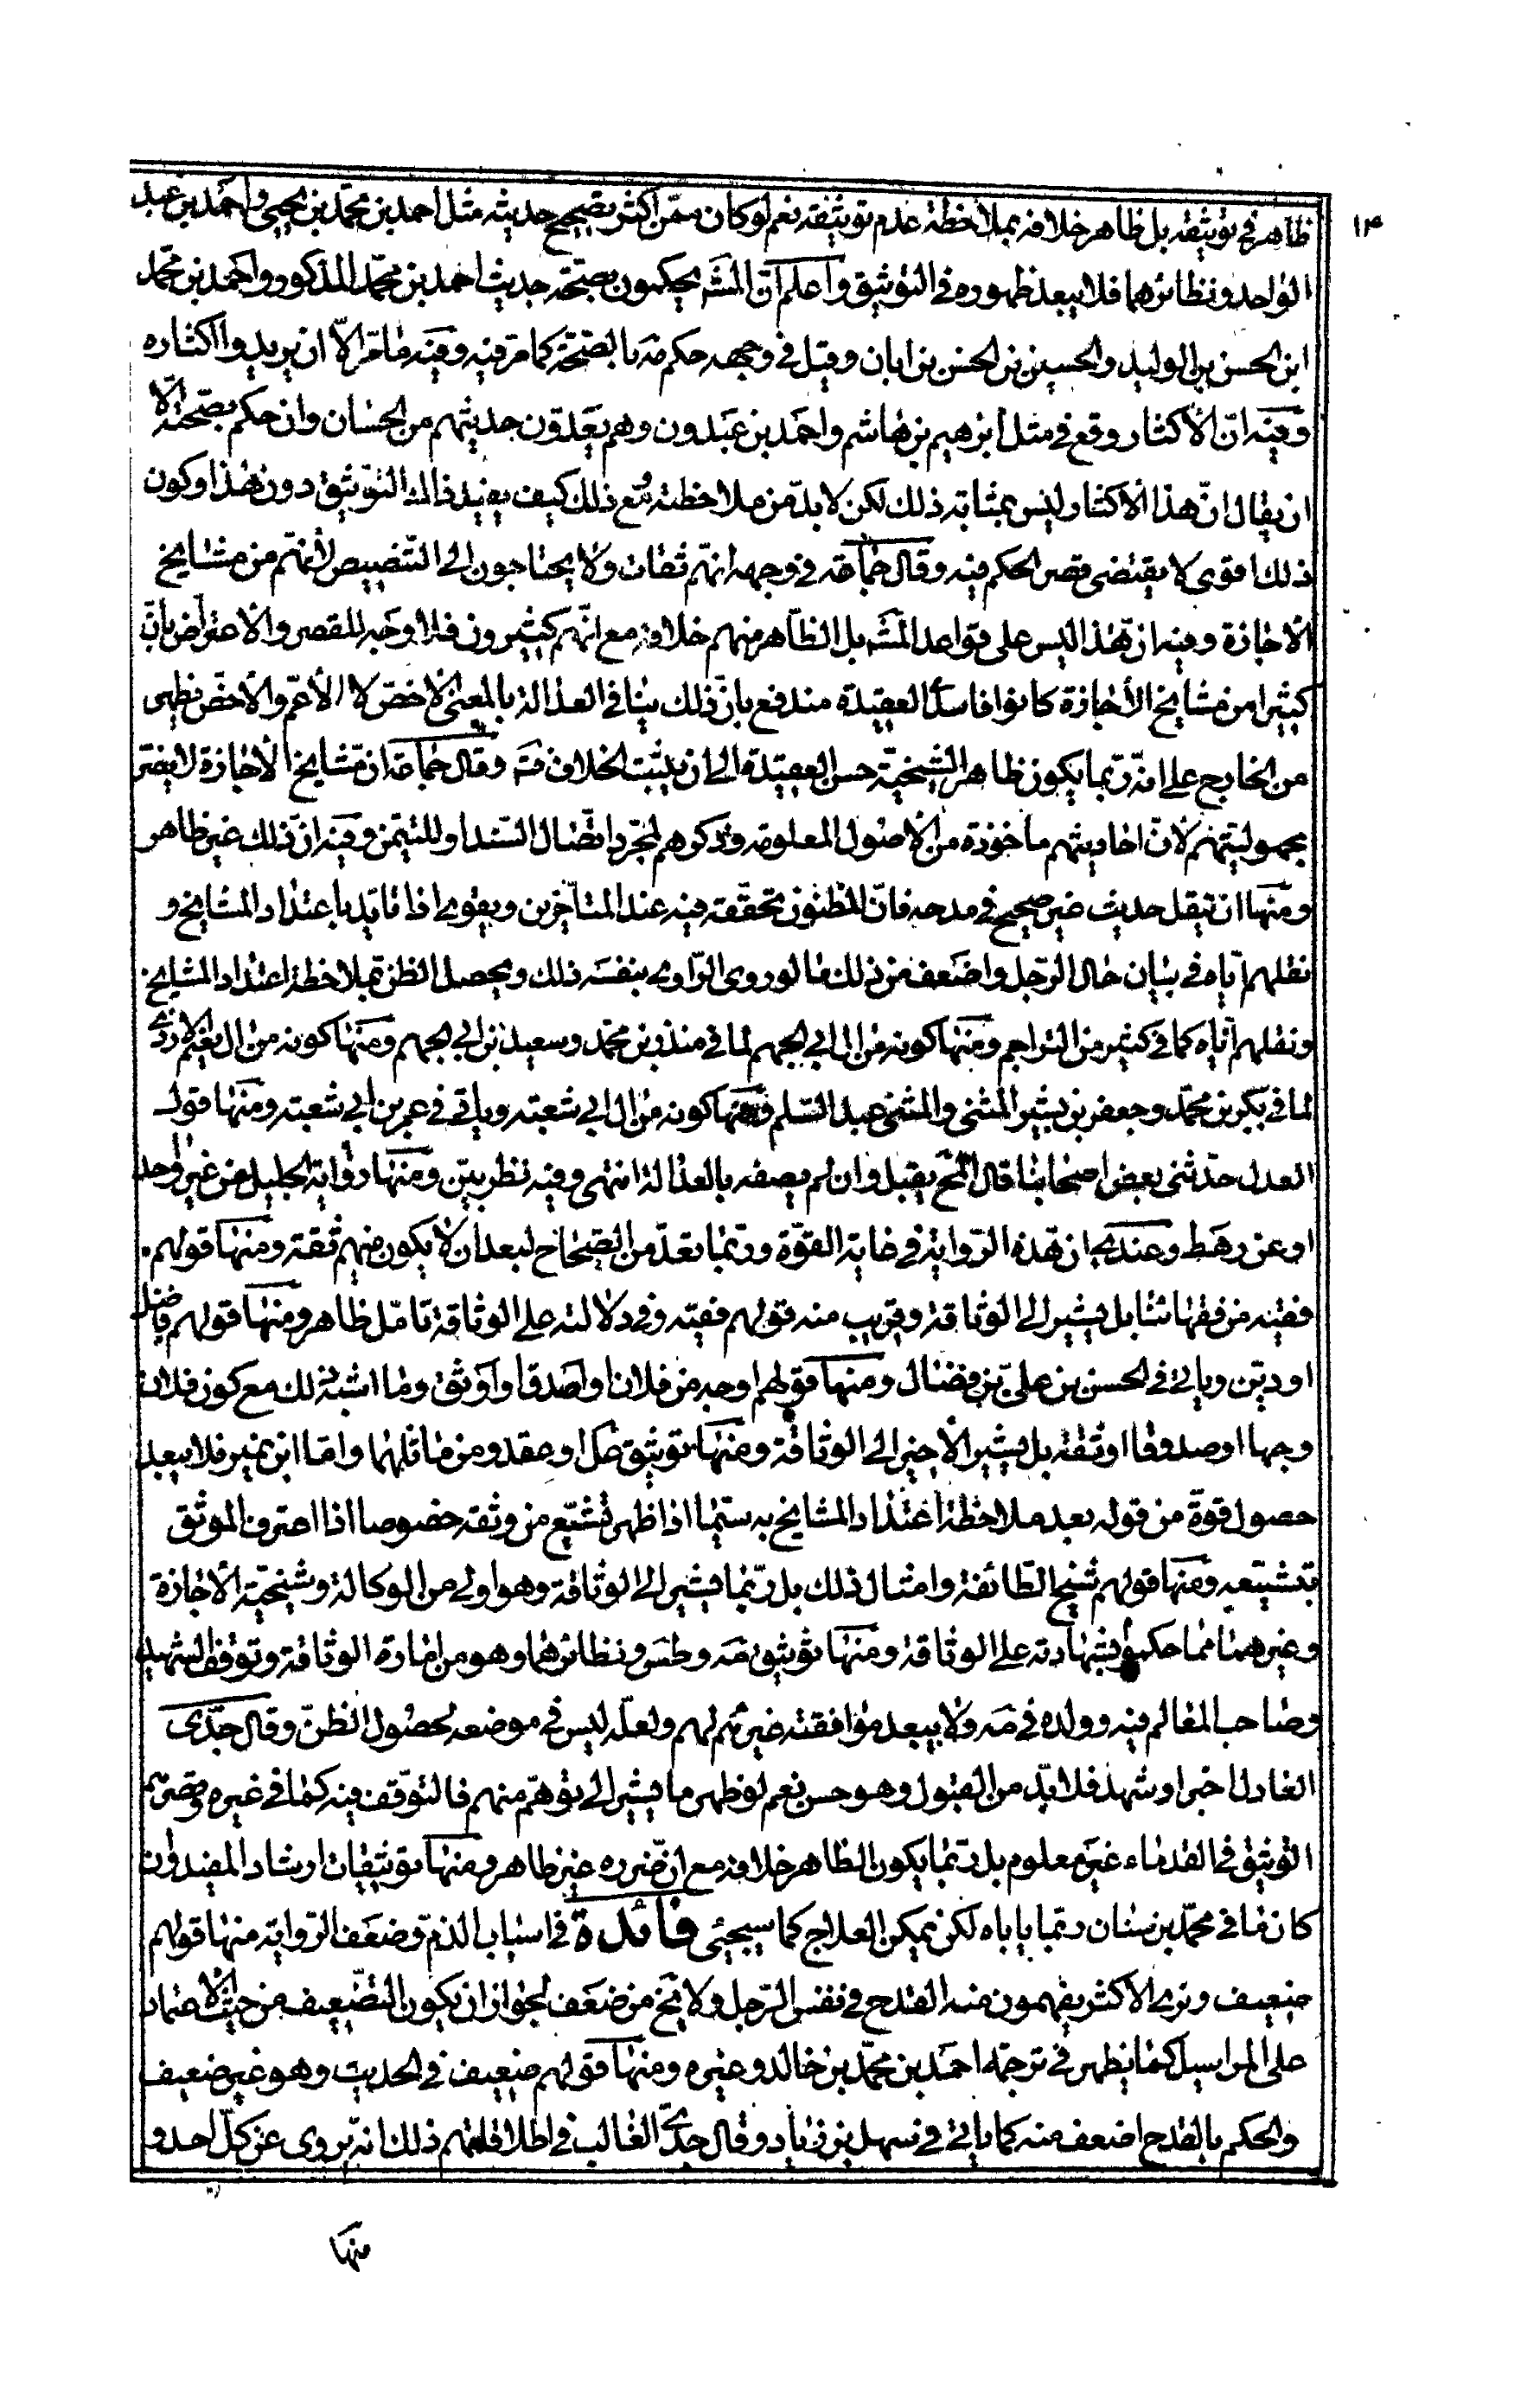 ١٣
ظاهر في توثيقه بل ظاهر خلافه بملاحظة عدم توثيقه نعم لو كان ممّن اكثر بتصحيح حديثه مثل احمد بن محمّد بن يحيى واحمد بن عبد
الواحد ونظائرهما فلا يبعد ظهوره في التوثيق واعلم انّ المشه يحكمون بصحّة حديث احمد بن محمّد المذكور واحمد بن محمّد
ابن الحسن بن الوليد والحسين بن الحسن بن ابان وقيل في وجهه حكم مه بالصّحّة كما مرّ فيه وفيه ما مرّ الاّ ان يريدوا اكثاره
وفيه انّ الاكثار وقع في مثل ابرهيم بن هاشم واحمد بن عبدون وهم يعدّون حديثهم من الحسان وان حكم بصحّته الاّ
ان يقال انّ هذا الاكثار ليس بمثابة ذلك لكن لا بدّ من ملاحظته ومع ذلك كيف يفيد ذلك التوثيق دون هذا وكون
ذلك اقوى لا يقتضى قصر الحكم فيه وقال جماعة في وجهه انّهم ثقات ولا يحتاجون الى التّنصيص لأنّهم من مشايخ
الاجازة وفيه انّ هذا ليس على قواعد المشه بل الظّاهر منهم خلافه مع انّهم كثيرون فلا وجه للقصر والاعتراض بانّ
كثيرا من مشايخ الأجازة كانوا فاسد العقيدة مندفع بانّ ذلك ينافي العدالة بالمعنى الاخصّ لا الأعمّ والاخصّ يظهر
من الخارج على انّه ربّما يكون ظاهر الشيخيّة حسن العقيدة الى ان يثبت الخلاف فتم وقال جماعة انّ مشايخ الأجازة لا يضرّ
مجهوليّتهم لأنّ احاديثهم مأخوذة من الاصول المعلومة وذكرهم لمجرّد اتّصال السّند او للتيمّن وفيه انّ ذلك غير ظاهر
ومنها ان ينقل حديث غير صحيح في مدحه فانّ المظنون تحقّقه فيه عند المتأخّرين ويقوى اذا تأيّد باعتداد المشايخ و
نقلهم ايّاه في بيان حال الرّجل واضعف من ذلك ما لو روى الرّاوى بنفسه ذلك ويحصل الظن بملاحظة اعتداد المشايخ
ونقلهم ايّاه كما في كثير من التراجم ومنها كونه من ال ابي الجهم لما في منذر بن محمّد وسعيد بن ابي الجهم ومنها كونه من ال نعيم الازدى
لما في بكر بن محمّد وجعفر بن بشير المثنى والمثنى عبد السّلم ومنها كونه من ال ابي شعبة وياتي في عمر بن ابي شعبة ومنها قول
العدل حدّثنى بعض اصحابنا قال المح يقبل وان لم يصفه بالعدالة انتهى وفيه نظر بيّن ومنها رواية الجليل عن غير واحد
او عن رهط وعندى ان هذه الرّواية في غاية القوّة وربّما تعدّ من الصّحاح لبعد ان لا يكون فيهم ثقة ومنها قولهم
فقيه من فقهائنا بل يشير الى الوثاقة وقريب منه قولهم فقيه وفي دلالته على الوثاقة تأمّل ظاهر ومنها قولهم فاضل
او ديّن وياتي في الحسن بن عليّ بن فضال ومنها قولهم اوجه من فلان او اصدق او اوثق وما اشبه ذلك مع كون فلان
وجها او صدوقا او ثقة بل يشير الأخير الى الوثاقة ومنها توثيق عل او عقد ومن ماثلهما وامّا ابن نمير فلا يبعد
حصول قوة من قوله بعد ملاحظة اعتداد المشايخ به سيّما اذا ظهر تشيّع من وثقه خصوصا اذا اعترف الموثق
بتشيّعه ومنها قولهم شيخ الطّائفة وامثال ذلك بل ربّما يشير الى الوثاقة وهو اولى من الوكالة وشيخيّة الأجازة
وغيرهما ممّا حكموا بشهادته على الوثاقة ومنها توثيق مه وطس ونظائرهما وهو من امارة الوثاقة وتوقف الشهيد
وصاحب المعالم فيه وولده في مه ولا يبعد موافقة غيرهم لهم ولعلّه ليس في موضعه لحصول الظنّ وقال جدّى
العادل اخبر او شهد فلا بدّ من القبول وهو حسن نعم لو ظهر ما يشير الى توهّم منهم فالتّوقف فيه كما في غيره وقصرهم
التّوثيق في القدماء غير معلوم بل ربّما يكون الظاهر خلافه مع انّ ضرره غير ظاهر ومنها توثيقات ارشاد المفيد وان
كان ما في محمّد بن سنان ربّما ياباه لكن يمكن العلاج كما سيجئى فائدة في اسباب الذمّ وضعف الرّواية منها قولهم
ضعيف ونرى الاكثر يفهمون منه القدح في نفس الرّجل ولا يخ من ضعف لجواز ان يكون التّضعيف من حيث الاعتماد
على المراسيل كما يظهر في ترجمة احمد بن محمّد بن خالد وغيره ومنها قولهم ضعيف في الحديث وهو غير ضعيف
والحكم بالقدح اضعف منه كما ياتي في سهل بن زياد وقال جدّى الغالب في اطلاقاتهم ذلك انّه يروى عن كلّ احد و
منها